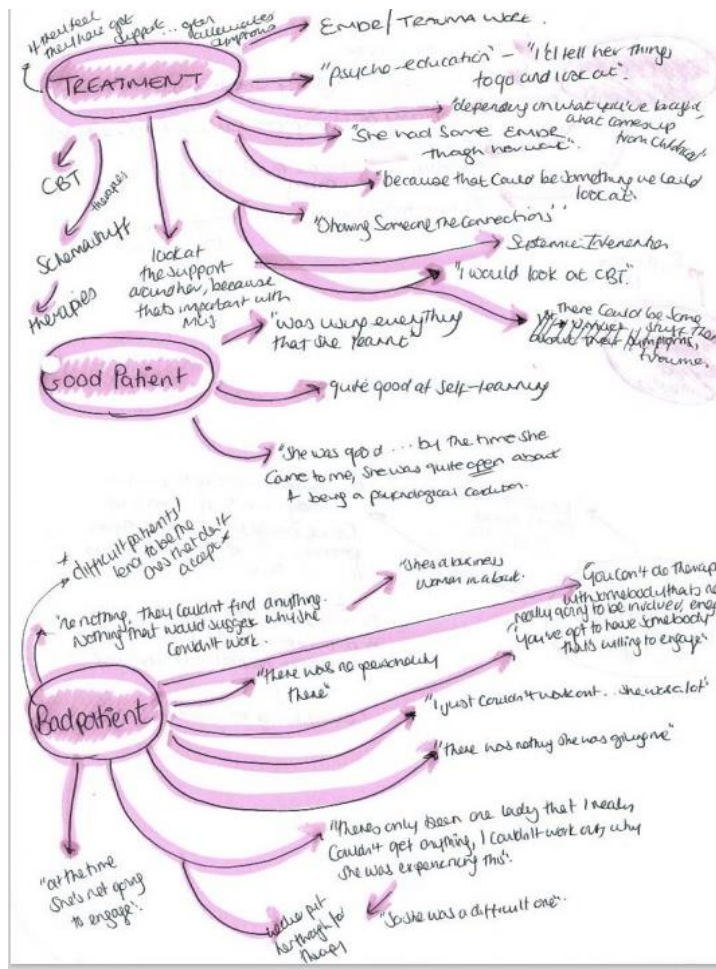 if they feel
they have got
support... often
symptoms
TREATMENT
EMDR/TRAUMA WORK.
"psycho-education" - "I'd tell her things
to go and look at".
"depending on what you've
what comes up
from childhood"
"She had some EMDR,
though her work".
"because that could be something we could
look at"
"Drawing someone the connections"
Systemic Intervention
"I would look at CBT."
There could be some
about their symptoms,
trauma
CBT
therapies
Schema
therapies
look at
the support
around her, because
that's important with
MUS
Good Patient
"was using everything
that she learnt"
quite good at self-learning
"She was good ... by the time she
came to me, she was quite open about
being a psychological condition.
* difficult patients'
tend to be the
ones that don't
accept *
nothing. They couldn't find anything.
Nothing that would suggest why she
couldn't work.
"She's a business
woman in about.
You can't do therapy
with somebody that's not
really going to be involved,
"You've got to have somebody
that's willing to engage"
Bad patient
"there was no personality
there"
"I just couldn't work out.. she was a lot"
"there was nothing she was giving me"
"there's only been one lady that I really
couldn't get anything, I couldn't work out, why
she was experiencing this".
"at the time
she's not going
to engage".
put
her through for
therapy
"So she was a difficult one".